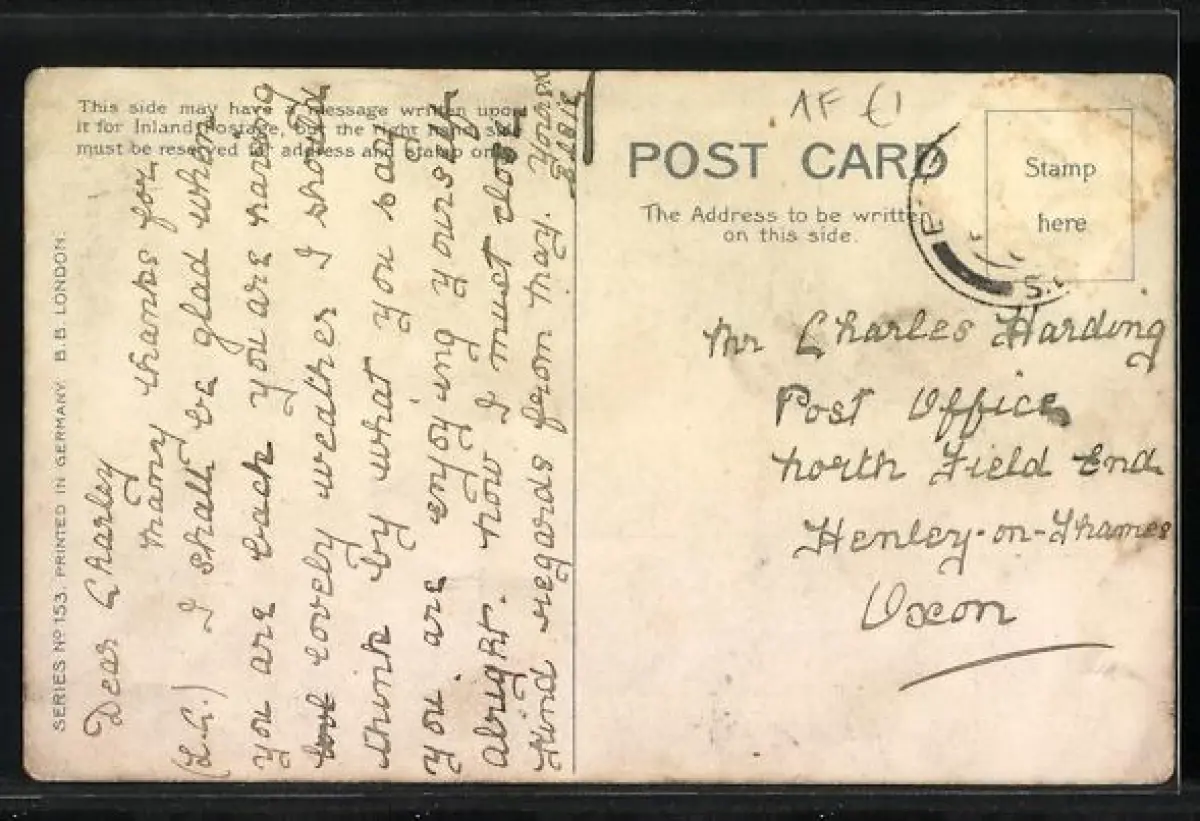 This side may have a message written upon
it for Inland Postage, but the right hand side
must be reserved for address and stamp only.
SERIES Nº 153. PRINTED IN GERMANY. B.B. LONDON.
Dear Charley
many thanks for
(L.G.) I shall be glad when
you are back you are having
lovely weather I should
think by what you say
you. are enjoying yourself
alright. now I must close
kind regards from may. yours
AF £1
POST CARD
The Address to be written
on this side.
Stamp
here
Mr Charles Harding
Post Office
north Field End
Henley-on-Thames
Oxon